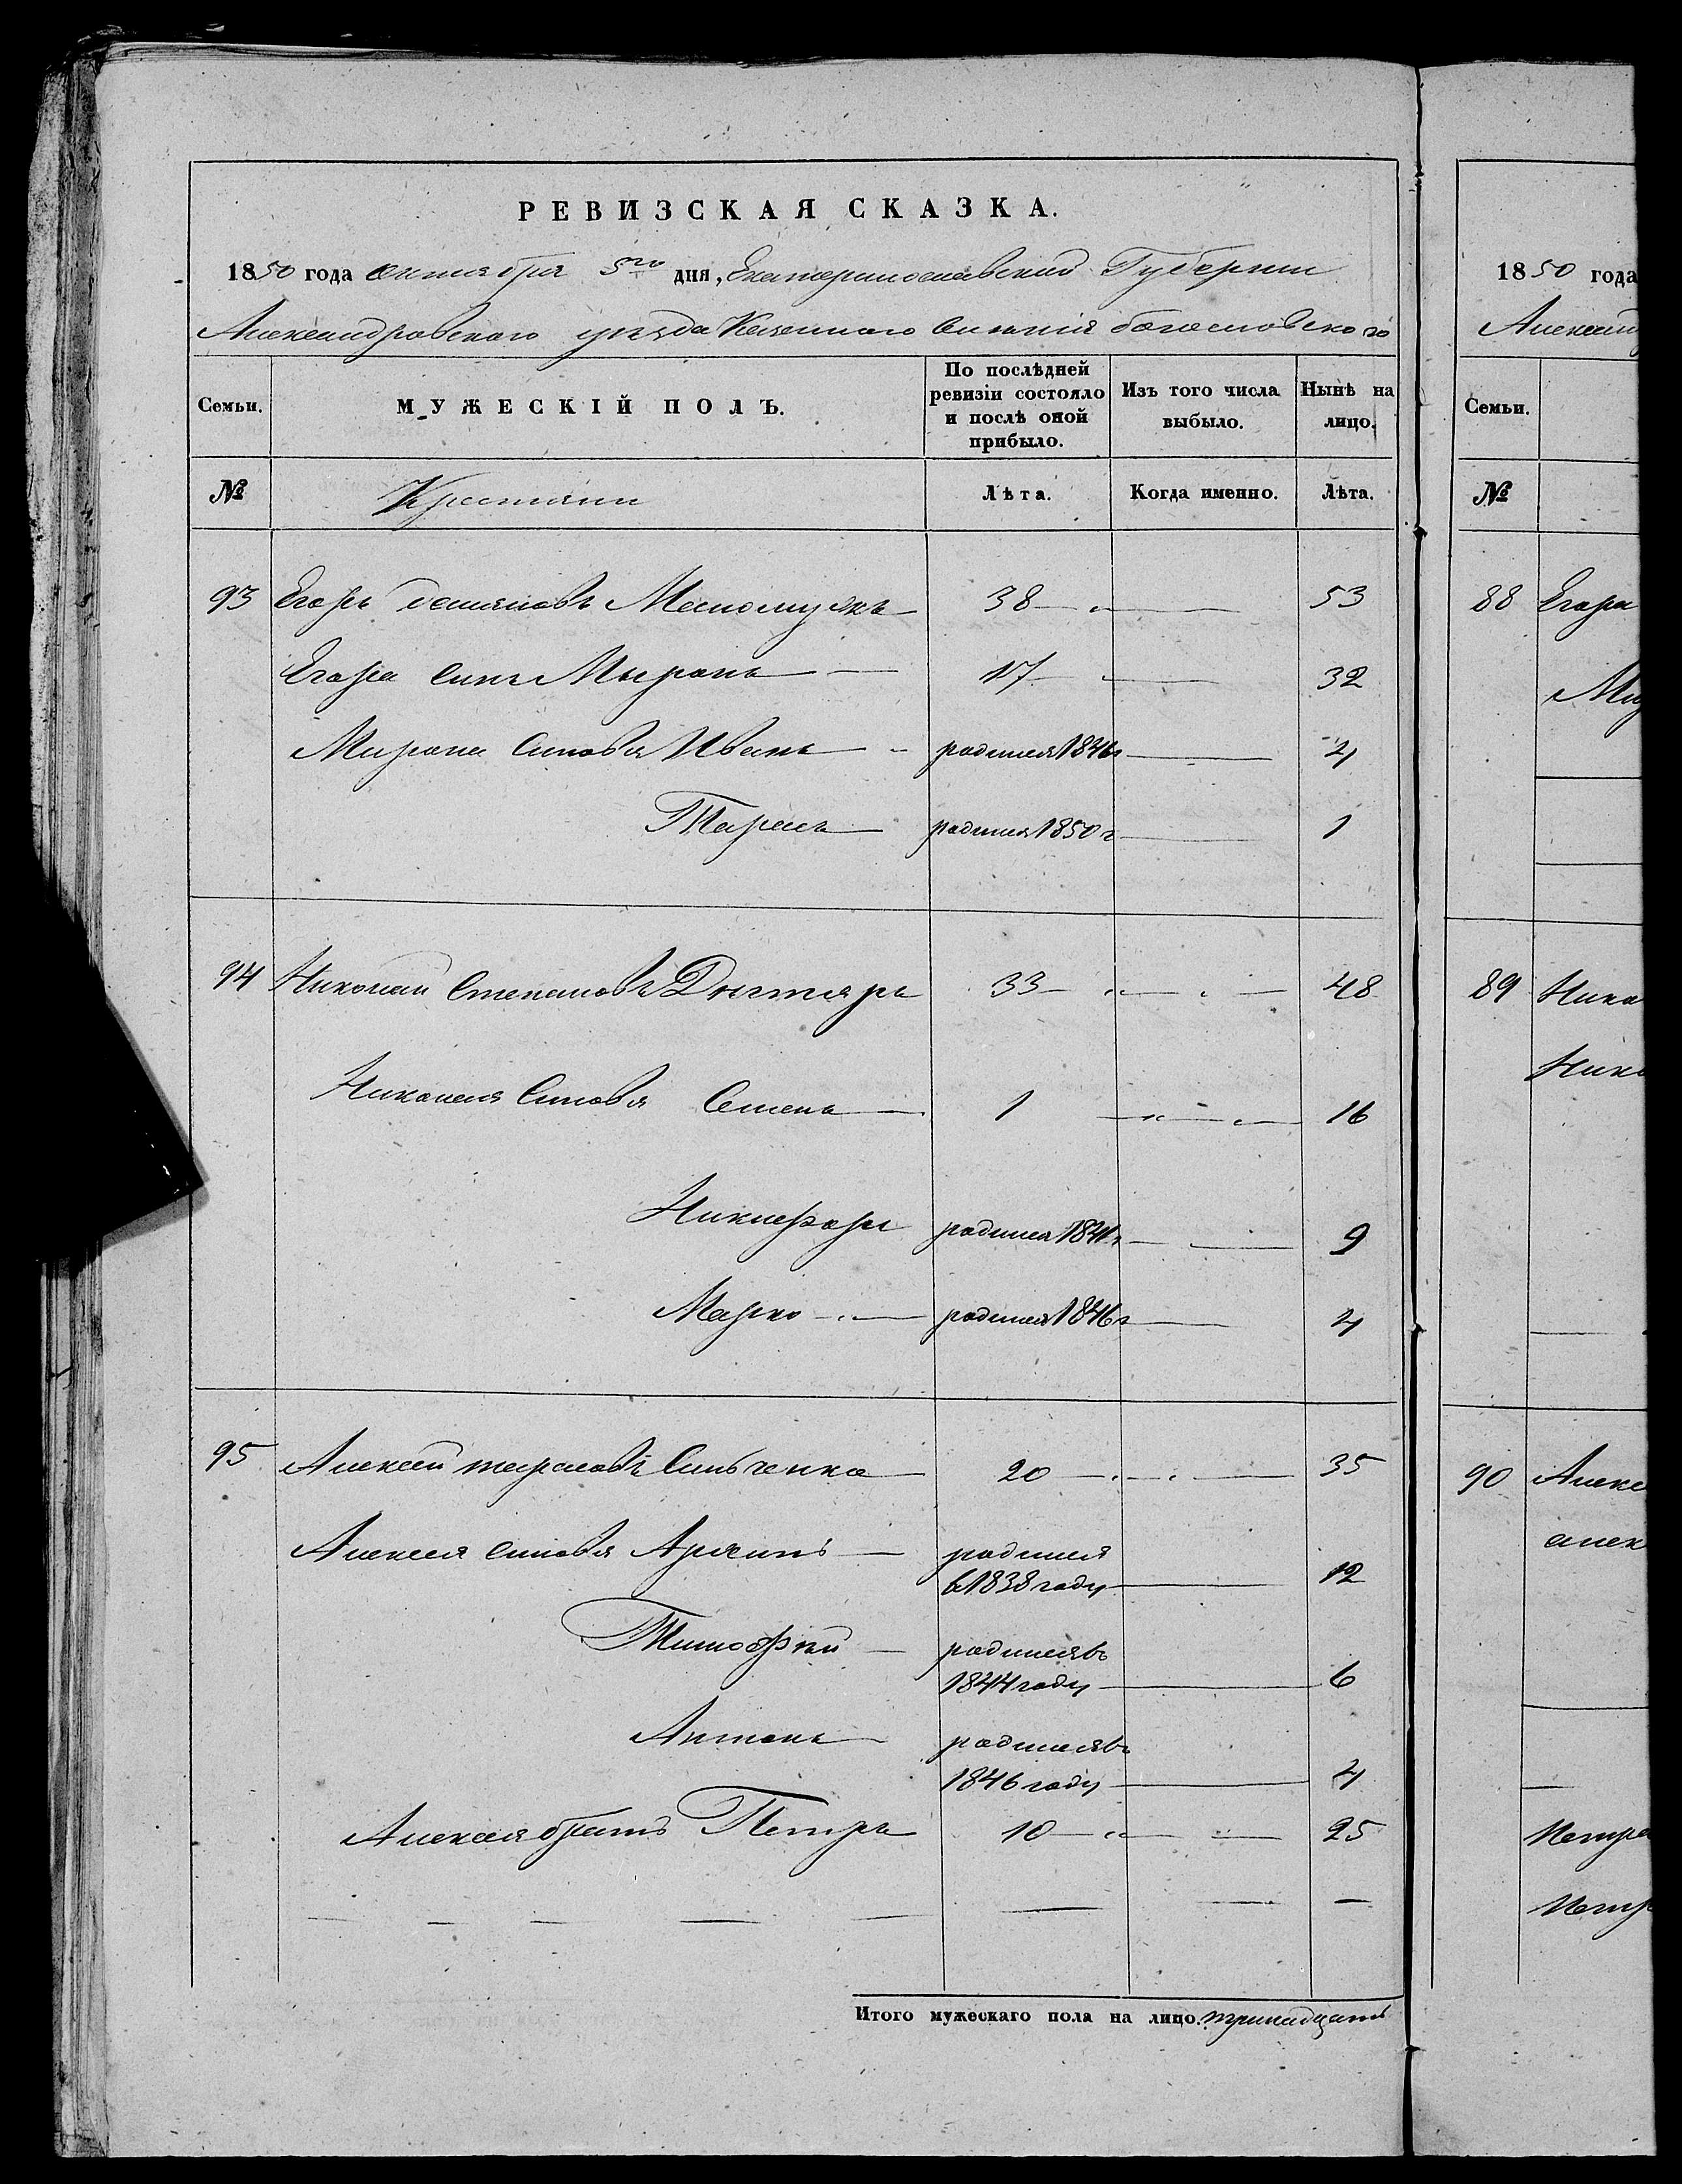 РЕВИЗСКАЯ СКАЗКА.
1850 года октября 5го дня, Екатеринославский Губернии
Александровского уезда Казенного Синнія богословского
Семьи. МУЖЕСКІЙ ПОЛЪ. По послѣдней ревизіи состояло и послѣ оной прибыло. Изъ того числа выбыло. Нынѣ на лицо.
№ Крестяни Лѣта. Когда именно. Лѣта.
93 Егоръ 38 53
Егора синъ Мыронъ 17 32
Мирона синовья Иванъ родился 1846г 4
Тарасъ родился 1850г 1
94 Николай Степановъ Дигтяръ 33 48
Николая Синовья Семенъ 1 16
Никифоръ родился 1841г 9
Марко родился 1846г 4
95 Алексей тарасовъ Сильченко 20 35
Алексея синовья родился
в 1838 году 12
Тимофѣй родился въ
1844 году 6
Антонъ родился въ
1846 году 4
Алексея братъ Петръ 10 25
Итого мужескаго пола на лицо. тринадцать
1850 года
Александ
Семьи.
№
88 Егора
Мир
89 Нико
Нико
90 Алексе
алек
Петра
Петр